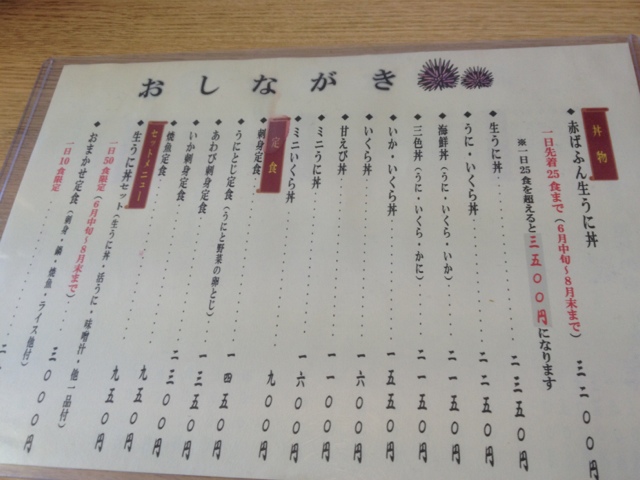 おしながき
丼物
◆赤ばふん生うに丼 三二〇〇円
一日先着25食まで（6月中旬～8月末まで）
※一日25食を超えると三五〇〇円になります
◆生うに丼 二三五〇円
◆うに・いくら丼 二二五〇円
◆海鮮丼（うに・いくら・いか） 二一五〇円
◆三色丼（うに・いくら・かに） 二一五〇円
◆いか・いくら丼 一五五〇円
◆いくら丼 一六〇〇円
◆甘えび丼 一一〇〇円
◆ミニうに丼 一六〇〇円
◆ミニいくら丼 九〇〇円
定食
◆刺身定食 一四五〇円
◆うにとじ定食（うにと野菜の卵とじ） 一三五〇円
◆あわび刺身定食 二三〇〇円
◆いか刺身定食 九五〇円
◆焼魚定食 九五〇円
セットメニュー
◆生うに丼セット（生うに丼・活うに・味噌汁・他一品付） 三〇〇〇円
一日50食限定（6月中旬～8月末まで）
◆おまかせ定食（刺身・鍋・焼魚・ライス他付） 二
一日10食限定